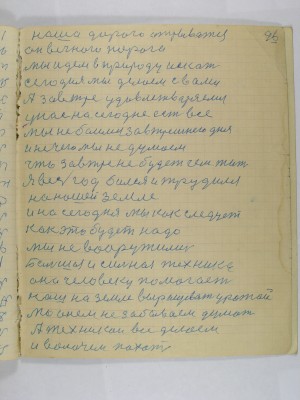 96
наша дорого отрываться
он вечного порога
мы идем в природу искат
сегодня мы делаем с вами
А завтре удовлетворяеми
у нас на сегодне ест все
мы не боимся завтрешнего дня
и не чем мы не думаем
что завтре не будет чем жит
Я весь год билса и трудилса
на нашей земле
и на сегодня мы как следует
как это будет надо
мы не вооружилис
болшая и силная техника
она человеку помогает
как на земле выращеват урожай
мы о нем не забоваем думат
А техникой все делаем
и волочем пахат